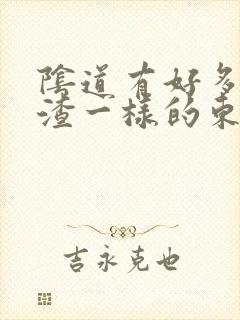 陰道有好多
渣一樣的東
吉永克也